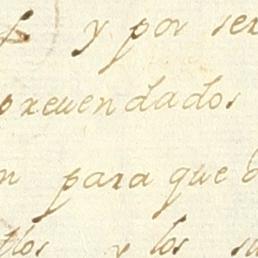 y por ser
prevendados
n para que
los y los su